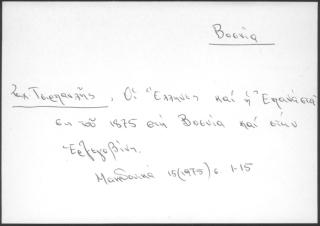 Βοσνία
Ζαχ. Τσιρπανλής, Οἱ Ἕλληνες καὶ ἡ Ἐπανάστα-
ση τοῦ 1875 στὴ Βοσνία καὶ στὴν
Ἑρζεγοβίνη.
Μακεδονικά 15 (1975) σ. 1-15